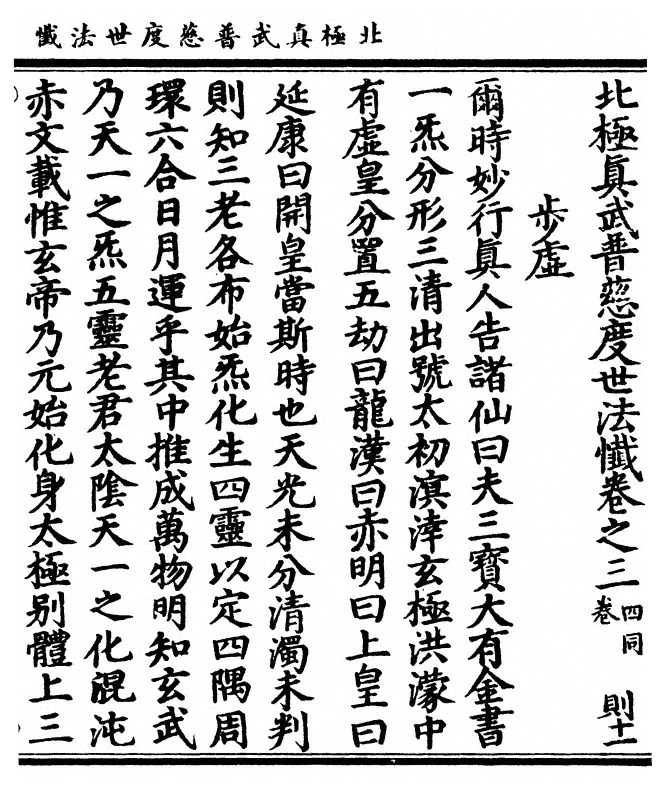 北極真武普慈度世法懺
北極眞武普慈度世法懺卷之三 四同卷 則十一
步虛
爾時妙行眞人告諸仙曰夫三寶大有金書
一炁分形三清出號太初溟涬玄極洪濛中
有虛皇分置五劫曰龍漢曰赤明曰上皇曰
延康曰開皇當斯時也天光未分清濁未判
則知三老各布始炁化生四靈以定四隅周
環六合日月運乎其中推成萬物明知玄武
乃天一之炁五靈老君太陰天一之化混沌
赤文載惟玄帝乃元始化身太極别體上三